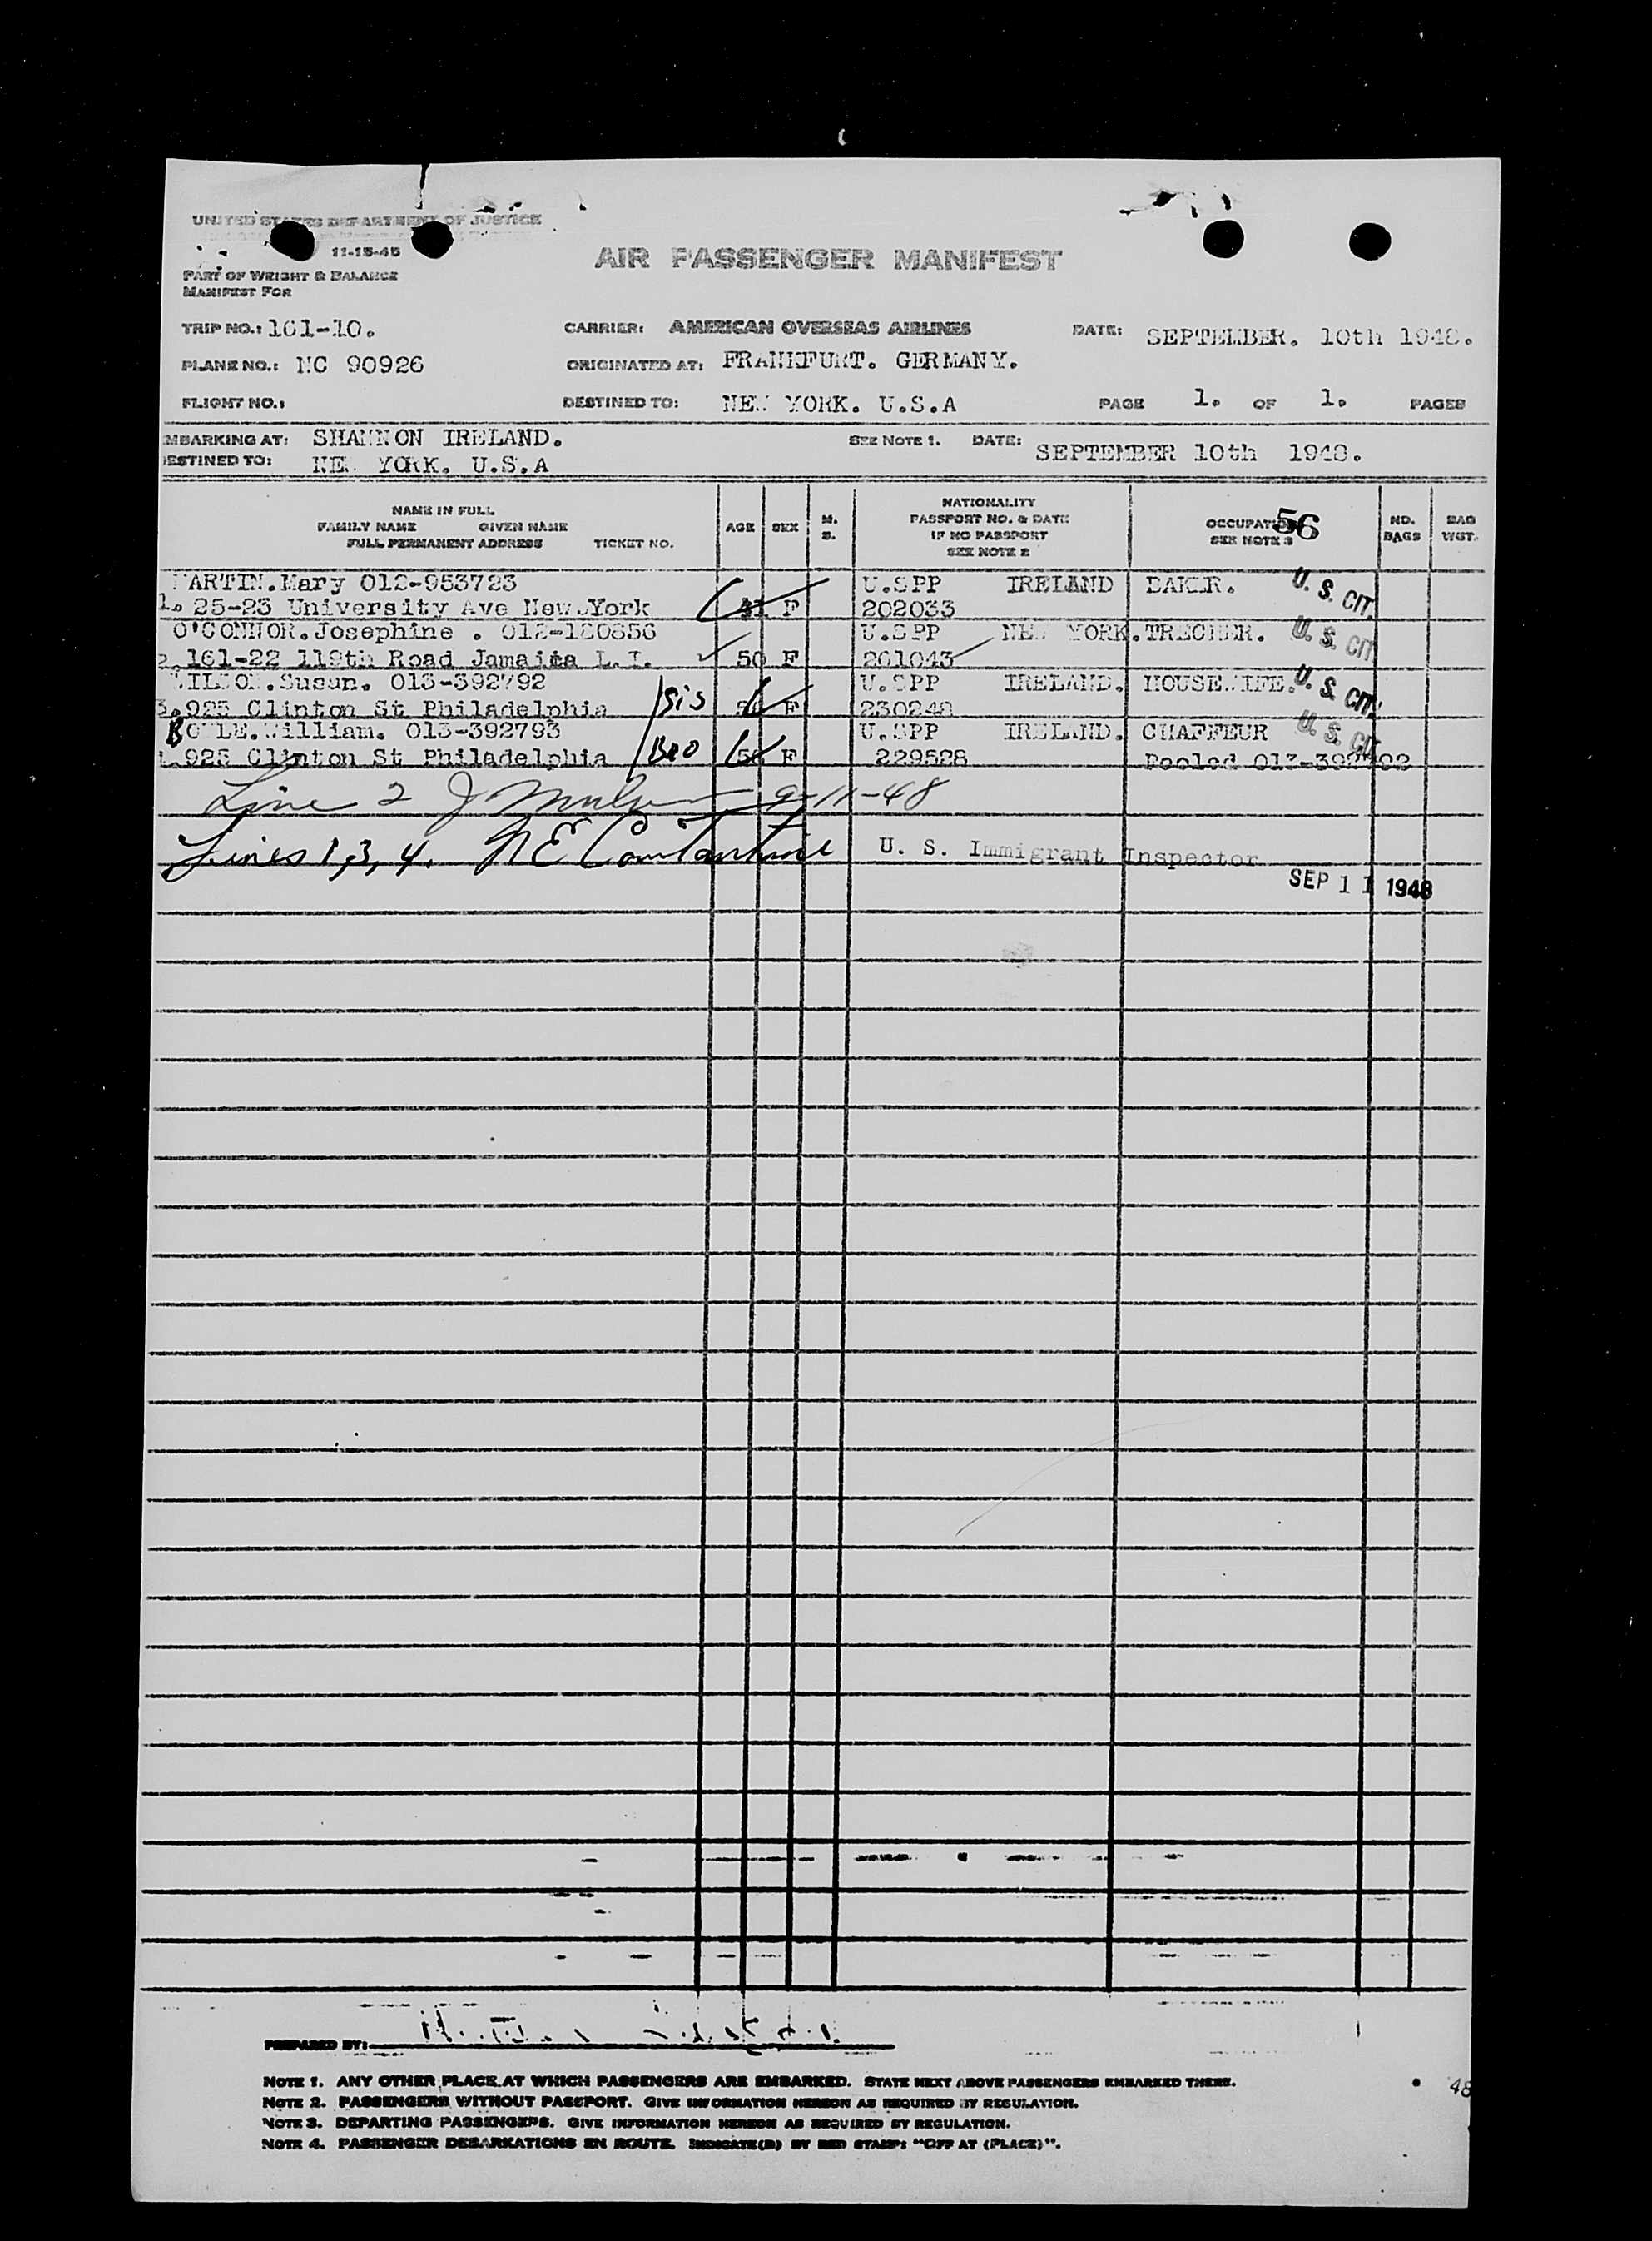 UNITED STATES DEPARTMENT OF JUSTICE
11-15-45
AIR PASSENGER MANIFEST
PART OF WEIGHT & BALANCE
MANIFEST FOR
TRIP NO.: 161-10. CARRIER: AMERICAN OVERSEAS AIRLINES DATE: SEPTEMBER. 10th 1948.
PLANE NO.: NC 90926 ORIGINATED AT: FRANKFURT. GERMANY.
FLIGHT NO.: DESTINED TO: NEW YORK. U.S.A PAGE 1. OF 1. PAGES
MBARKING AT: SHANNON IRELAND. SEE NOTE 1. DATE: SEPTEMBER 10th 1948.
ESTINED TO: NEW YORK. U.S.A
NAME IN FULL
FAMILY NAME GIVEN NAME
FULL PERMANENT ADDRESS TICKET NO.
AGE SEX M. S.
NATIONALITY
PASSPORT NO. & DATE
IF NO PASSPORT
SEE NOTE 2
OCCUPATION 56
SEE NOTE 3
NO. BAGS
BAG WGT.
MARTIN.Mary 012-953723 U.SPP IRELAND BAKER. U. S. CIT.
1. 25-23 University Ave New York F 202033
O'CONNOR.Josephine . 012-180856 U.SPP NEW YORK. TRECHER. U. S. CIT
2. 161-22 119th Road Jamaica L.I. 50 F 201043
WILSON.Susan. 013-392792 Sis U.SPP IRELAND. HOUSEWIFE. U. S. CIT.
3. 925 Clinton St Philadelphia F 230248
BOYLE.William. 013-392793 U.SPP IRELAND. CHAFFEUR U. S. CIT
925 Clinton St Philadelphia Bro F 229528 Pooled 013-392792
Line 2 J 9-11-48
Lines 1, 3, 4. N E Constantine U. S. Immigrant Inspector
SEP 11 1948
PREPARED BY:
NOTE 1. ANY OTHER PLACE AT WHICH PASSENGERS ARE EMBARKED. STATE NEXT ABOVE PASSENGERS EMBARKED THERE.
NOTE 2. PASSENGERS WITHOUT PASSPORT. GIVE INFORMATION HEREON AS REQUIRED BY REGULATION.
NOTE 3. DEPARTING PASSENGERS. GIVE INFORMATION HEREON AS REQUIRED BY REGULATION.
NOTE 4. PASSENGER DEBARKATIONS EN ROUTE. INDICATE(D) BY RED STAMP: "OFF AT (PLACE)".
48